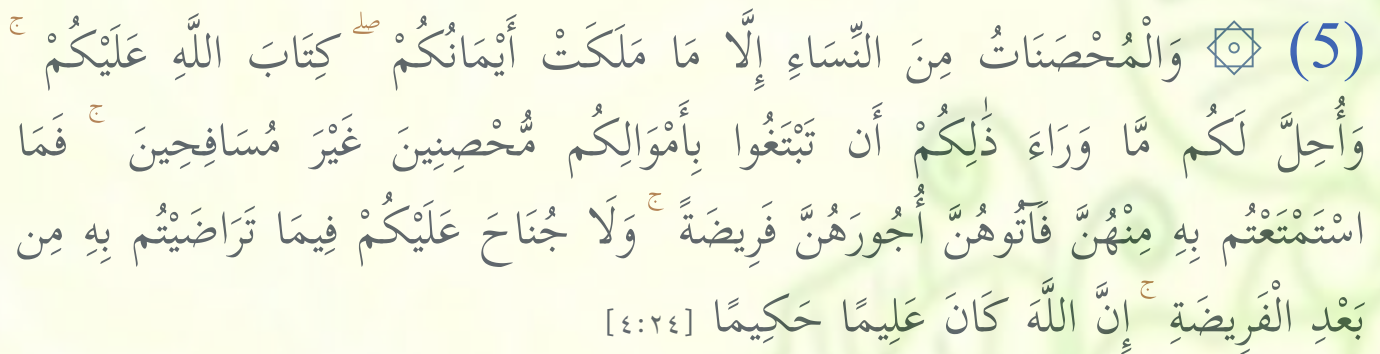 (5) ۞ وَالْمُحْصَنَاتُ مِنَ النِّسَاءِ إِلَّا مَا مَلَكَتْ أَيْمَانُكُمْ ۖ كِتَابَ اللَّهِ عَلَيْكُمْ ۚ
وَأُحِلَّ لَكُم مَّا وَرَاءَ ذَٰلِكُمْ أَن تَبْتَغُوا بِأَمْوَالِكُم مُّحْصِنِينَ غَيْرَ مُسَافِحِينَ ۚ فَمَا
اسْتَمْتَعْتُم بِهِ مِنْهُنَّ فَآتُوهُنَّ أُجُورَهُنَّ فَرِيضَةً ۚ وَلَا جُنَاحَ عَلَيْكُمْ فِيمَا تَرَاضَيْتُم بِهِ مِن
بَعْدِ الْفَرِيضَةِ ۚ إِنَّ اللَّهَ كَانَ عَلِيمًا حَكِيمًا [٤:٢٤]